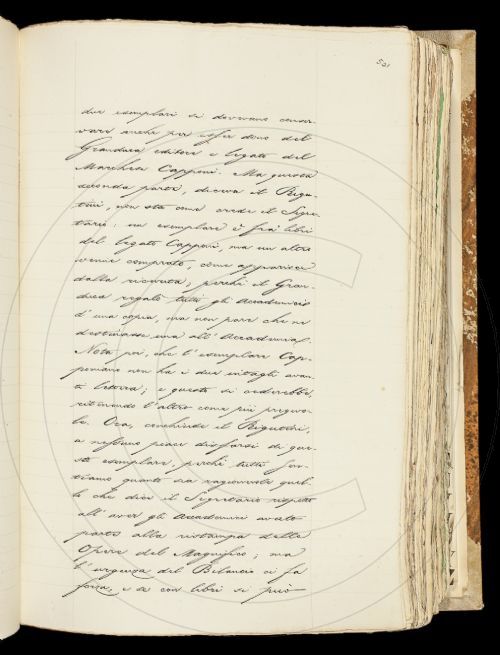 501
due esemplari si dovevano conser-
vare anche per esser dono del
Granduca editore e legato del
Marchese Capponi. Ma questa
seconda parte, diceva il Rigu-
tini, non sta come crede il Segre-
tario: un esemplare è fra i libri
del legato Capponi, ma un altro
venne comprato, come apparisce
dalla ricevuta, perchè il Gran-
duca regalò tutti gli Accademici
d'una copia, ma non pare che ne
destinasse una all'Accademia.
Nota poi, che l'esemplare Cap-
poniano non ha i due intagli avan-
ti lettera; e questo si cederebbe,
ritenendo l'altro come più pregevo-
le. Ora, conchiude il Rigutini,
a nessuno piace disfarsi di que-
sto esemplare, perchè tutti sen-
tiamo quanto sia ragionevole quel-
lo che dice il Segretario rispetto
all'aver gli Accademici avuto
parte alla ristampa delle
Opere del Magnifico; ma
l'urgenza del Bilancio ci fa
forza, e se con libri si può